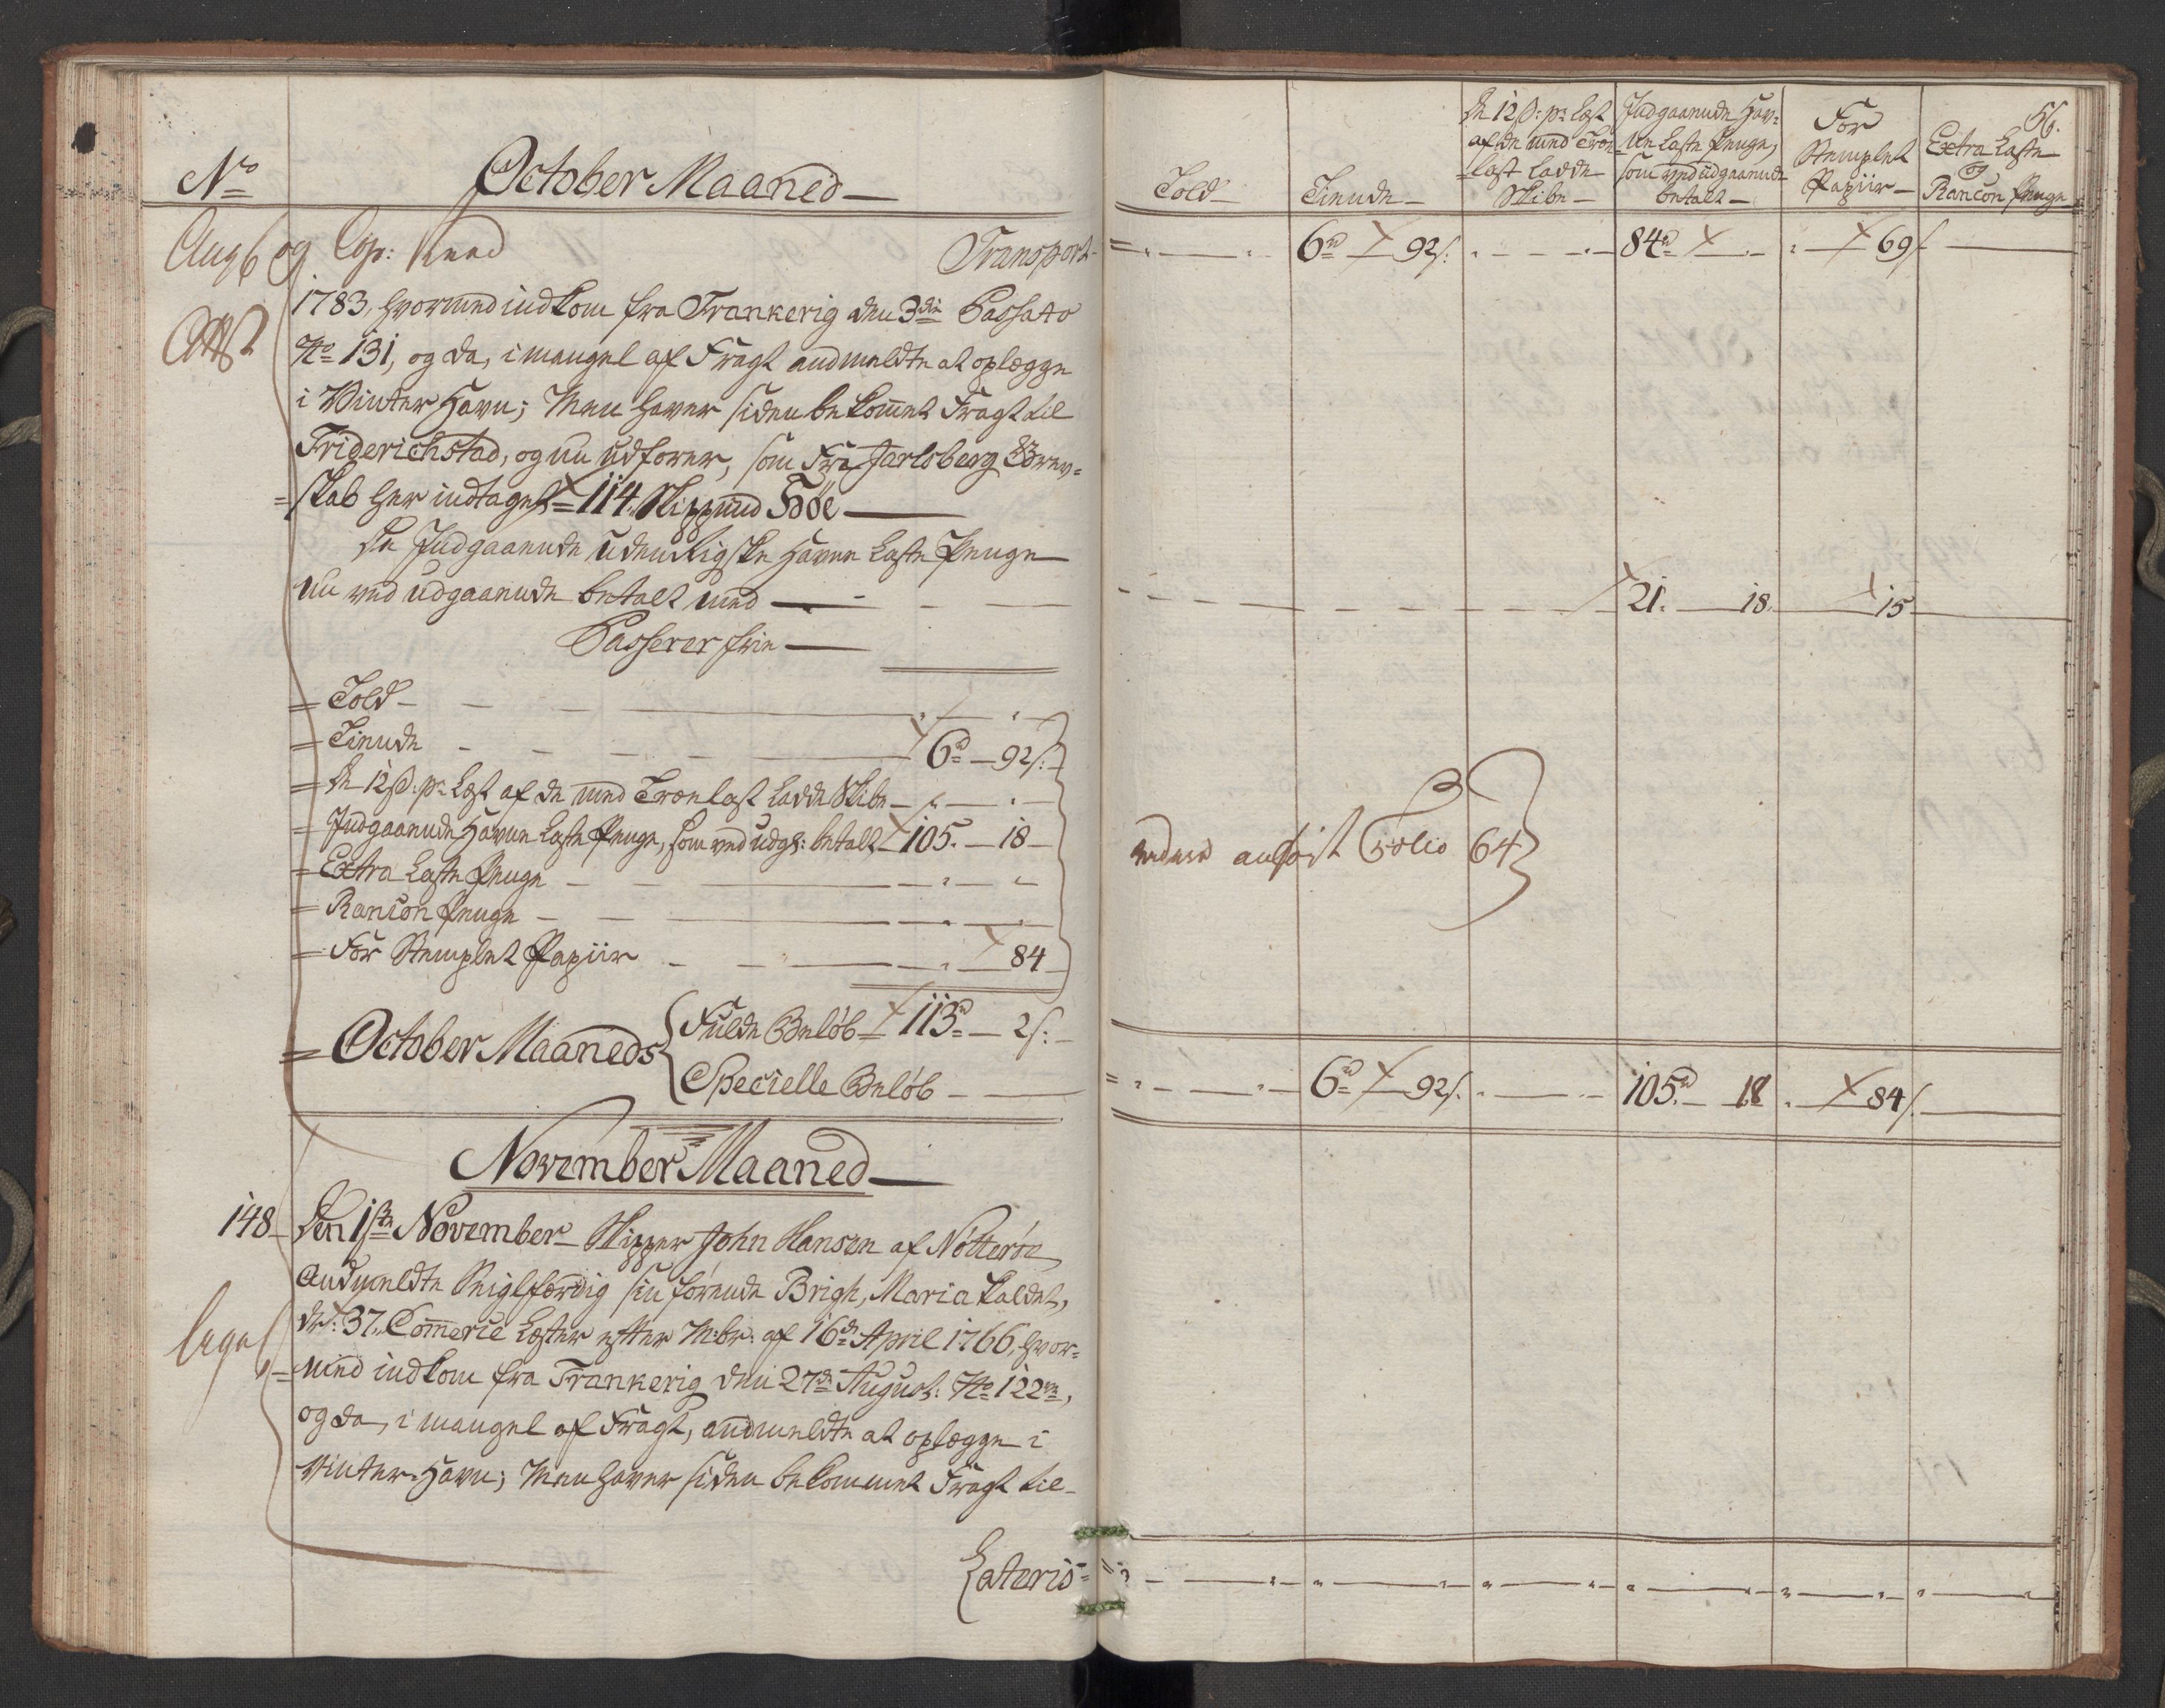 No
October Maaned
Transport
1783, hvormed indkom fra Frankerig den 3die Passato
No 131, og da, i mangel af Fragt andmeldte at oplægge
i Winter Havn; Men haver siden bekommet Fragt til
Friderichstad, og nu udfører, som fra Jarlsberg Grev-
skab her indtaget 114. Skippund Høe
De Indgaaende Udenrigske Havne Laste Penge
nu ved udgaaende betalt med
Passerer frie
Told
Tiende 6rd 92s.
De 12s. pr Læst af de med Trælast ladde Skibe
Indgaaende Havne Laste Penge, som ved udg: betalt 105. 18
Extra Laste Penge
Rancon Penge
For Stemplet Papiir 84
October Maaneds Fulde Beløb 113rd 2s.
Specielle Beløb
November Maaned
148 Den 1ste November Skipper John Hansen af Nøtterøe
Andmeldte Seiglfærdig sin førende Brigh, Maria kaldet,
dr: 37. Commerce Læster efter M:br: af 16de April 1766, hvor-
med indkom fra Frankerig den 27de August: No 122,
og da, i mangel af Fragt, andmeldte at oplægge i
Winter-Havn; Men haver siden bekommet Fragt til
Lateris
56.
Told
Tiende
De 12s: pr Læst
af de med Træ-
last ladde
Skibe
Indgaaende Hav-
ne Laste Penge,
som ved udgaaende
betalt
For
Stemplet
Papiir
Extra Laste
og
Rancon Penge
6rd 92s. 84rd 69s
21. 18. 15
anført Folio 64
6rd 92s. 105rd 18 84s.